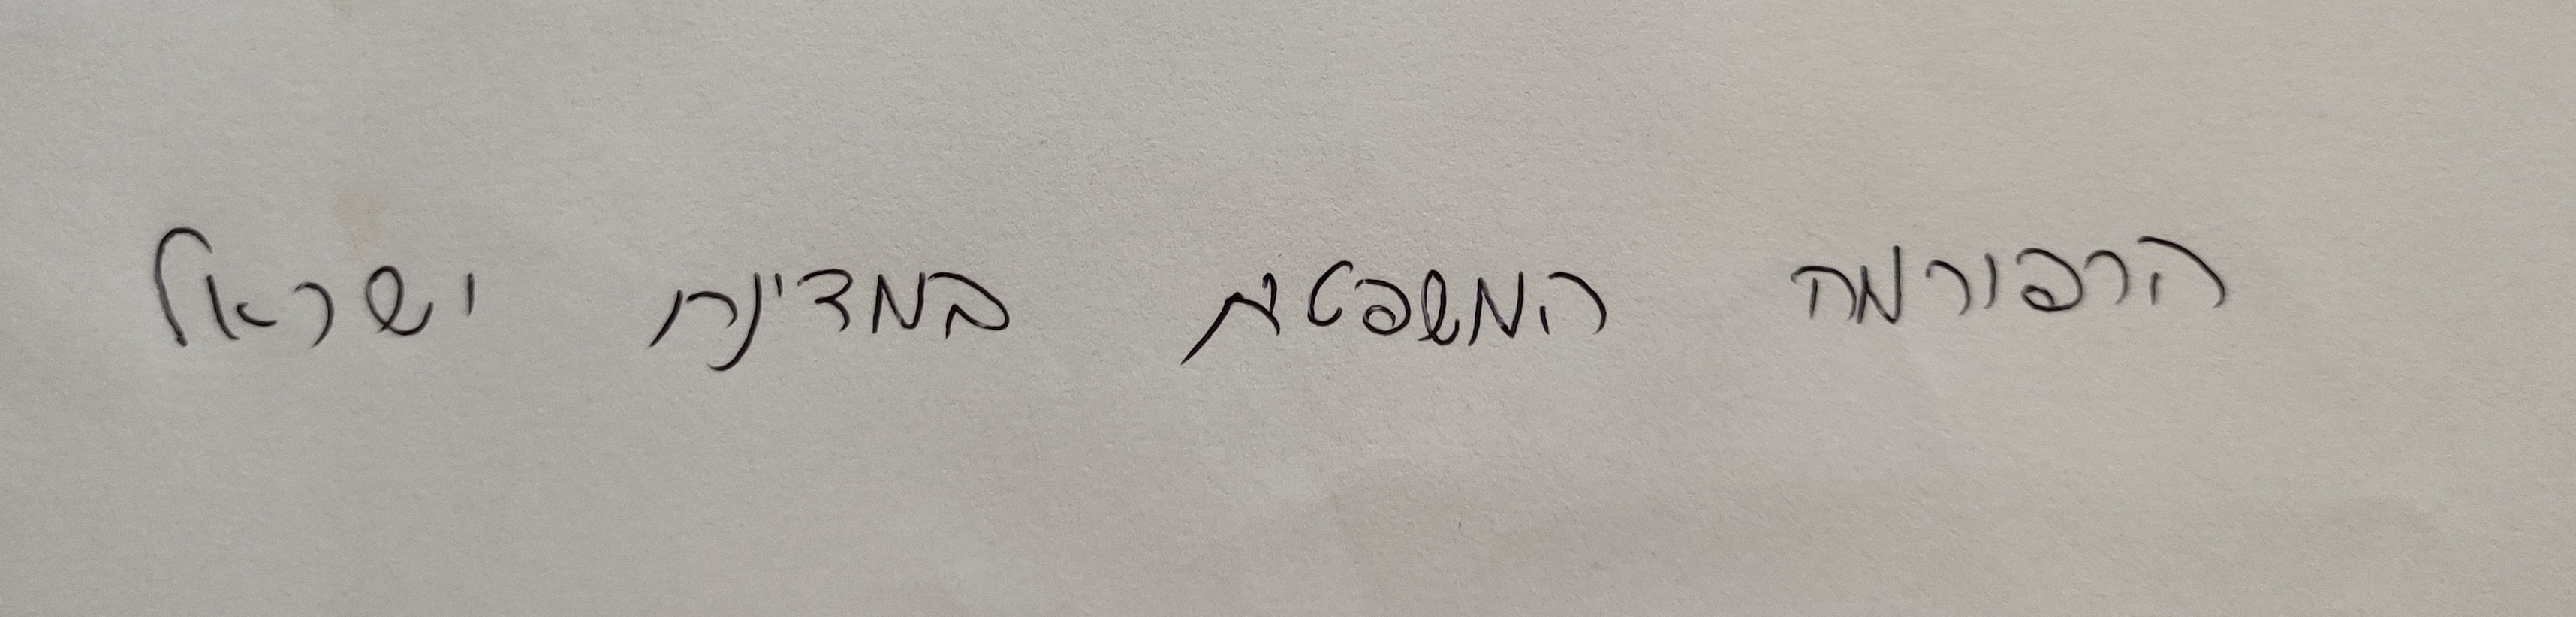 הרפורמה המשפטית במדינת ישראל